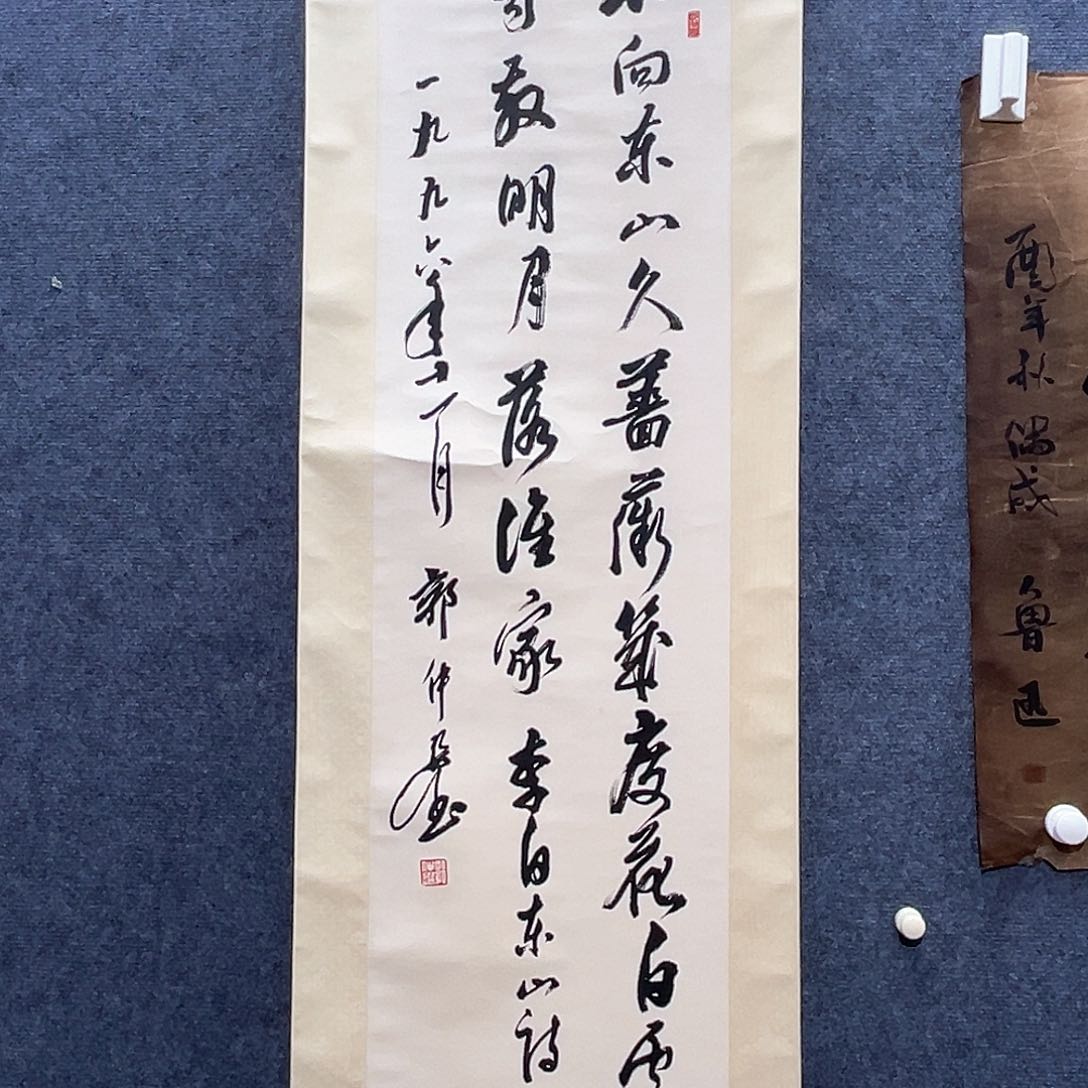 向东山久薔薇幾度花白云
散明月落谁家 李白东山诗
一九九六年十一月 郭仲选书
酉年秋偶成 魯迅